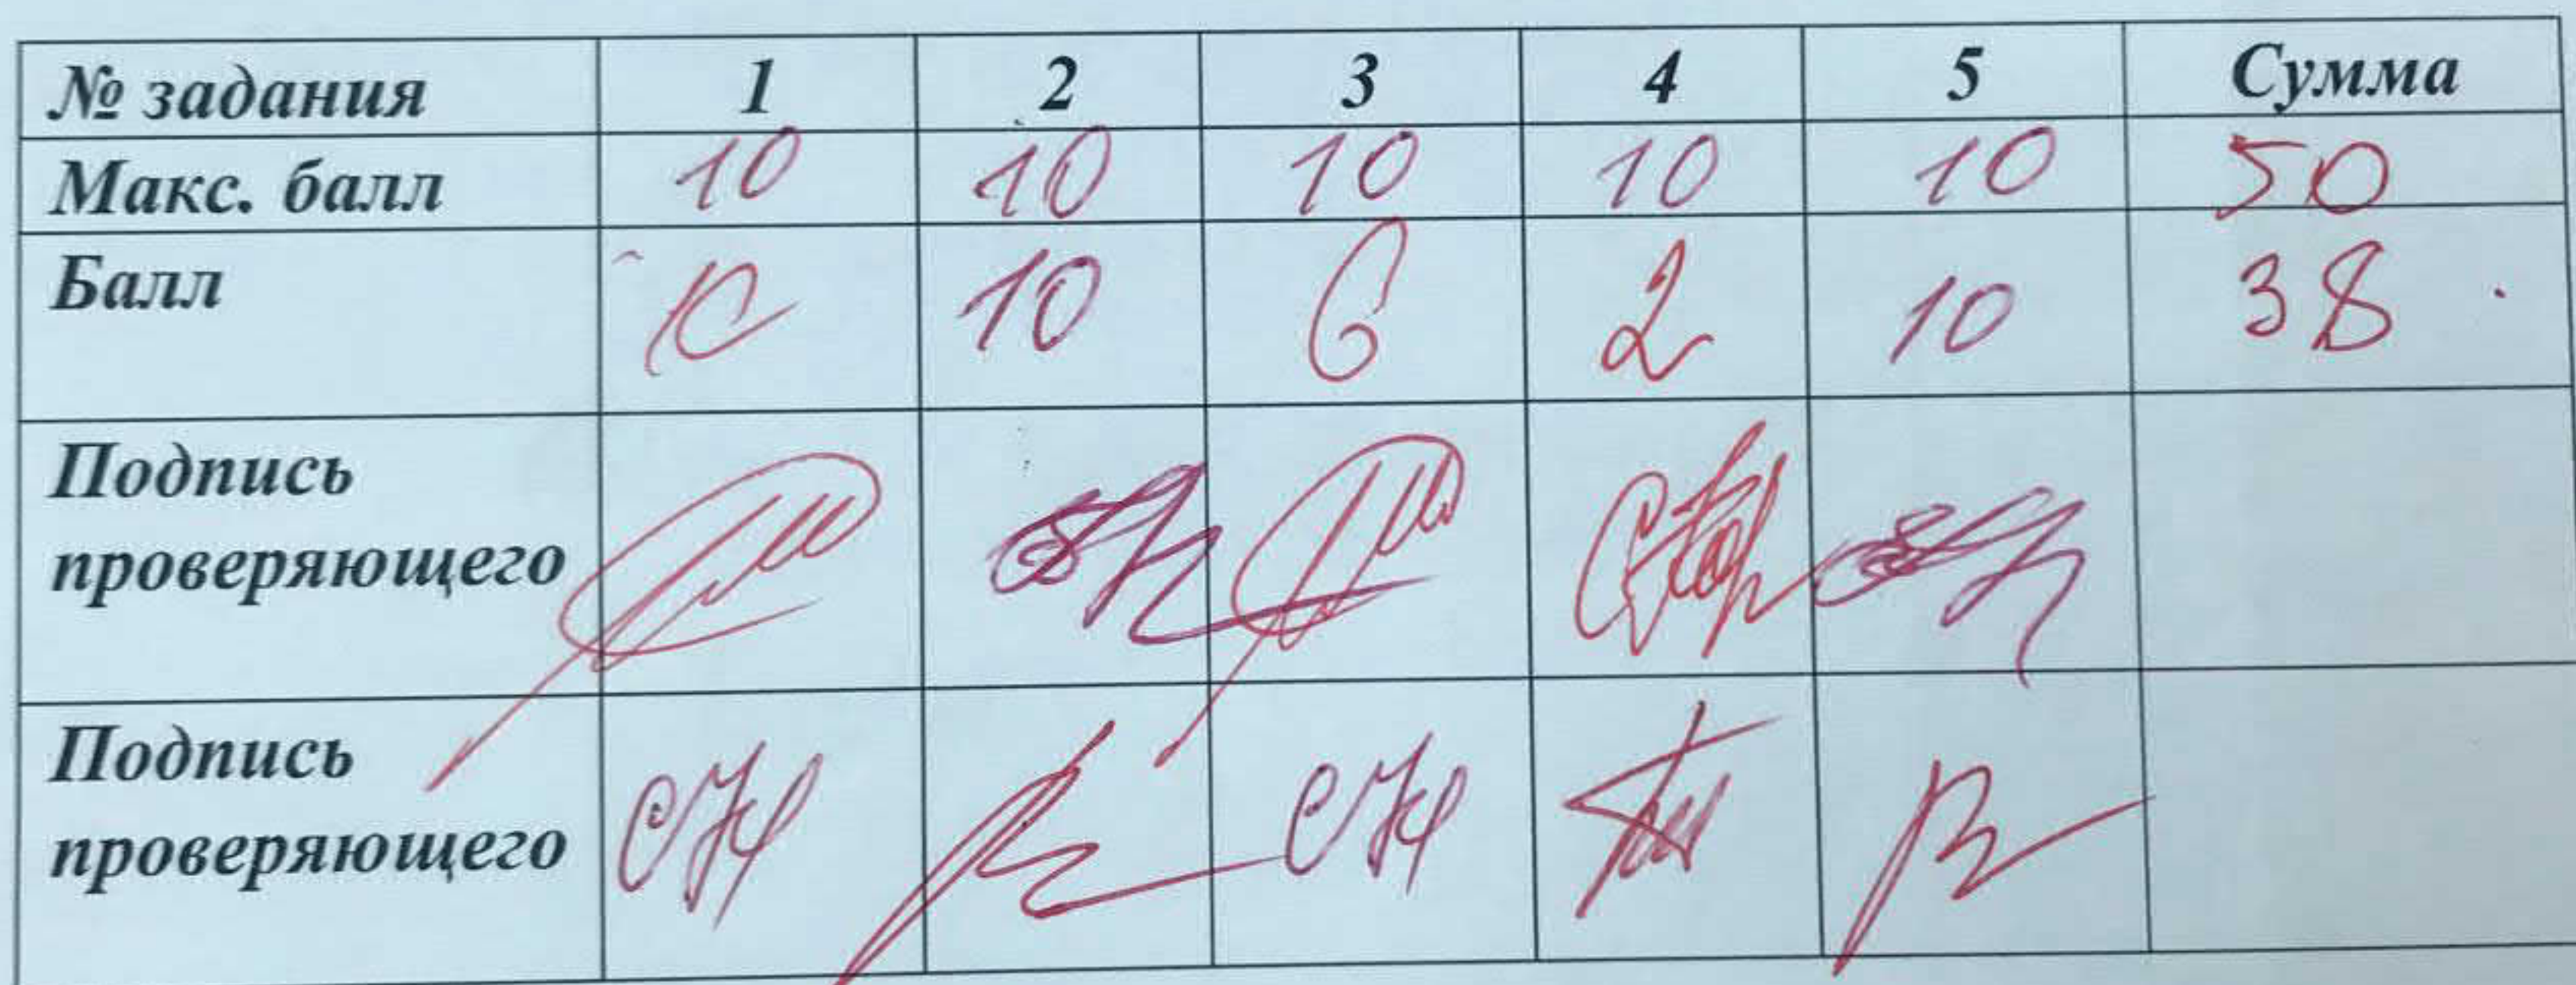 № задания 1 2 3 4 5 Сумма
Макс. балл 10 10 10 10 10 50
Балл 10 10 6 2 10 38
Подпись
проверяющего
Подпись
проверяющего